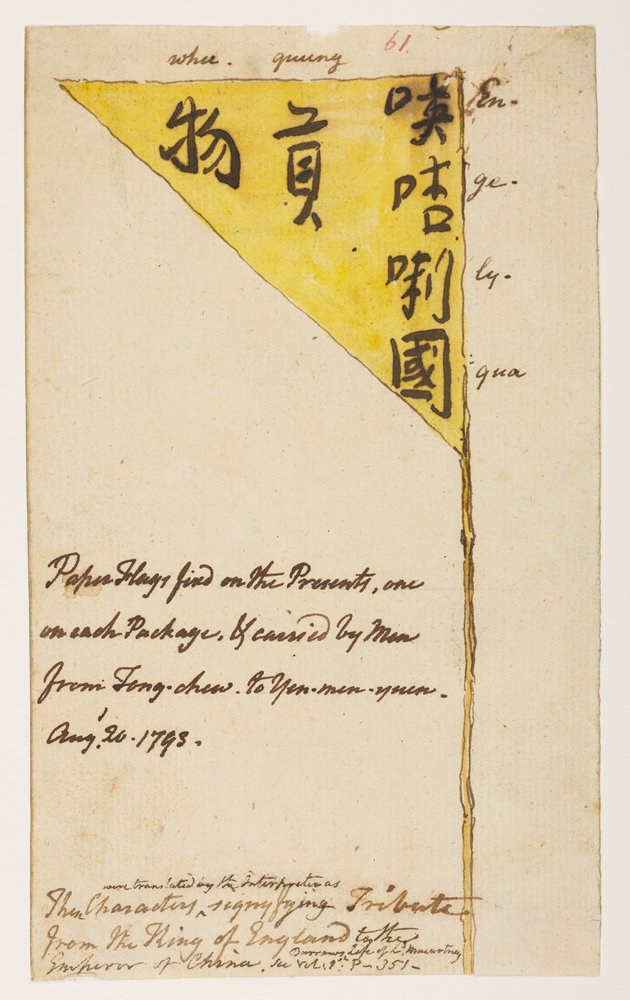 whu. quung 61.
噗咭唎國
貢
物
En-
ge-
ly-
qua
Paper Flags fixd on the Presents, one
on each Package, & carried by Men
from Tong-chew. to Yen-men-yuen.
Augt. 20. 1793.
were translated by the Interpreter as
These Characters signyfying Tribute
from the King of England to the
Emperor of China. see Barrows Life of Ld. Macartney
vol. 1st. P-351-